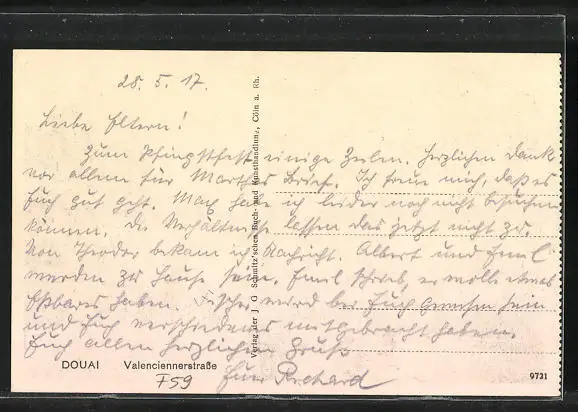 28. 5. 17.
Liebe Eltern!
Zum Pfingstfest einige Zeilen. Herzlichen Dank
vor allem für Marthas Brief. Ich freue mich, daß es
Euch gut geht. Max habe ich leider noch nicht besuchen
können, die Verhältnisse lassen das jetzt nicht zu.
Von Theodor bekam ich Nachricht. Albert und Emil
werden zu Hause sein. Emil schrieb, er wolle etwas
Eßbares haben. Fischer wird bei Euch gewesen sein
und Euch verschiedenes mitgebracht haben.
Euch allen herzlichen Gruß
Euer Richard
Verlag der J. G. Schmitz'schen Buch- und Kunsthandlung, Cöln a. Rh.
DOUAI Valenciennerstraße
F59
9731